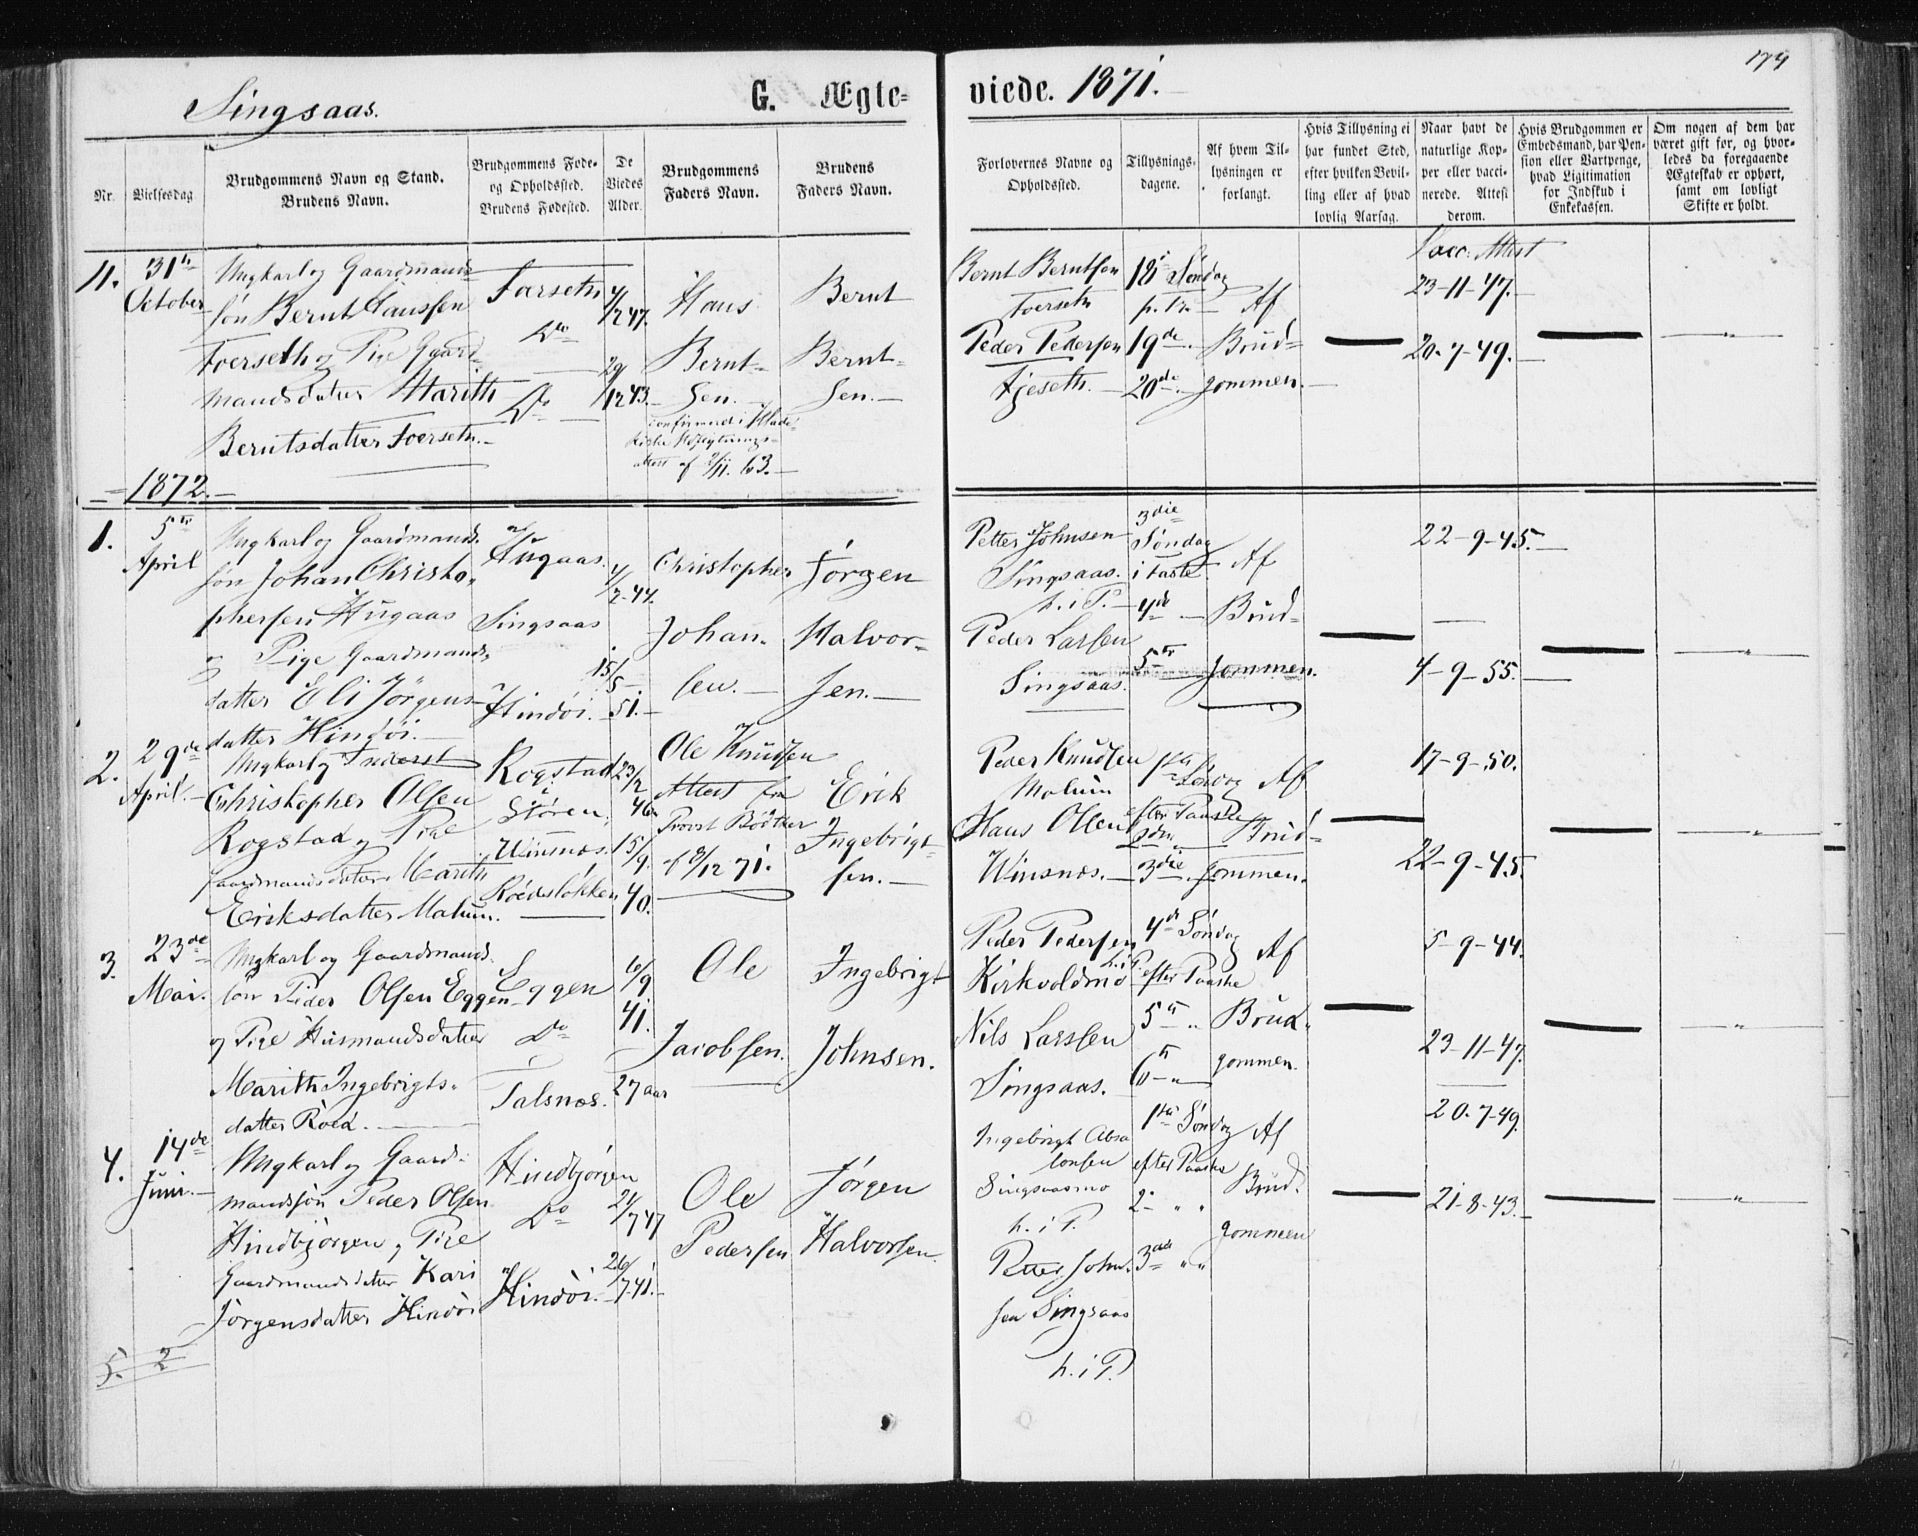 174
Singsaas.
G. Ægte=
viede. 1871.
Nr.
Vielsesdag
Brudgommens Navn og Stand.
Brudens Navn.
Brudgommens Føde-
og Opholdssted.
Brudens Fødested.
De
Viedes
Alder.
Brudgommens
Faders Navn.
Brudens
Faders Navn.
Forlovernes Navne og
Opholdssted.
Tillysnings-
dagene.
Af hvem Til-
lysningen er
forlangt.
Hvis Tillysning ei
har fundet Sted,
efter hvilken Bevil-
ling eller af hvad
lovlig Aarsag.
Naar havt de
naturlige Kop-
per eller vacci-
nerede. Attest
derom.
Hvis Brudgommen er
Embedsmand, har Pen-
sion eller Vartpenge,
hvad Ligitimation
for Indskud i
Enkekassen.
Om nogen af dem har
været gift før, og hvor-
ledes da foregaaende
Ægteskab er ophørt,
samt om lovligt
Skifte er holdt.
11.
31te
October
Ungkarl og Gaardmands
søn Bernt Hanssen
Forseth og Pige Gaard-
mandsdatter Marith
Berntsdatter Forseth.
Forseth
Do
Do
4/2 47.
29/12 43.
Hans
Bernt-
sen.
Bernt
Bernt-
sen.
attest af 2/11. 63.
Bernt Berntsen
Forseth
Peder Pedersen
Fjeseth.
18i Søndag
p. Tr.
19de
20de
Af
Brud-
gommen.
Vacc. Attest
23-11-47.
20-7-49.
1872.
1.
5te
April
Ungkarl og Gaardmands-
søn Johan Christo-
phersen Hugaas
og Pige Gaardmands-
datter Eli Jørgens-
datter Hindøi.
Hugaas.
Singsaas
Hindøi.
4/2-44.
15/5-
51.
Christopher
Johan-
sen.
Jørgen
Halvor-
sen.
Petter Johnsen
Singsaas.
h. i P.
Peder Larssen
Singsaas.
3die
Søndag
i Faste
4de
5te
Af
Brud-
gommen.
22-9-45.
4-9-55.
2.
29de
April.
Ungkarl og Inderst
Christopher Olsen
Rogstad og Pige
Gaardmandsdatter Marith
Eriksdatter Molum.
Rogstad
i
Støren.
Winsnes.
Roedsløkken
23/2
46.
15/9.
40.
Ole Knudsen
Attest fra
Provst Bødtker
af 8/12 71.
Erik
Ingebrigt-
sen.
Peder Knudsen
Molum
Hans Olsen
Winsnes.
1ste
Søndag
efter Paaske
2den
3die
Af
Brud-
gommen.
17-9-50.
22-9-45.
3.
23de
Mai.
Ungkarl og Gaardmands-
søn Peder Olsen Eggen
og Pige Husmandsdatter
Marith Ingebrigts-
datter Roed.
Eggen
Do
Talsnes.
6/9
41.
27 aar
Ole
Jacobsen.
Ingebrigt
Johnsen.
Peder Pedersen
h. i P.
Kirkvoldmo
Nils Larssen
Singsaas.
4de Søndag
efter Paaske
5te "
6te "
Af
Brud-
gommen.
5-9-44.
23-11-47.
4.
14de
Juni.
Ungkarl og Gaard-
mandssøn Peder Olsen
Hindbjørgen og Pige
Gaardmandsdatter Kari
Jørgensdatter Hindøi
Hindbjørgen
Do
Hindøi.
21/7 47
26/7-41.
Ole
Pedersen
Jørgen
Halvorsen.
Ingebrigt Absa
lonsen
Singsaasmo
h. i P.
Petter John-
sen Singsaas
h. i P.
1ste Søndag
efter Paaske
2- " "
3die " "
Af
Brud-
gommen
20-7-49.
21-8-43.
5. 2